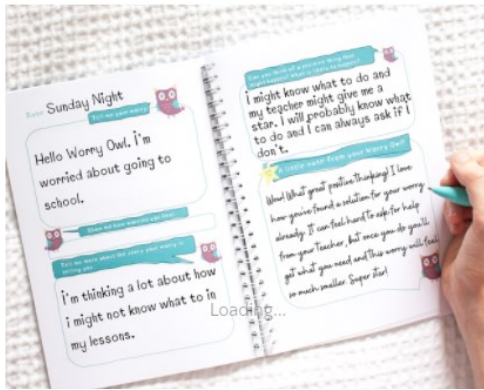 Date Sunday Night
Tell me your worry
Hello Worry Owl. I'm
worried about going to
school.
Show me how worried you feel
Tell me more about the story your worry is
telling you
I'm thinking a lot about how
i might not know what to in
my lessons.
Can you think of a positive thing that
might happen? What is likely to happen?
I might know what to do and
my teacher might give me a
star. I will probably know what
to do and I can always ask if I
don't.
A little note from your Worry Owl
Wow! What great positive thinking! I love
how you've found a solution for your worry
already. It can feel hard to ask for help
from your teacher, but once you do you'll
get what you need and this worry will feel
so much smaller. Super star!
Loading...